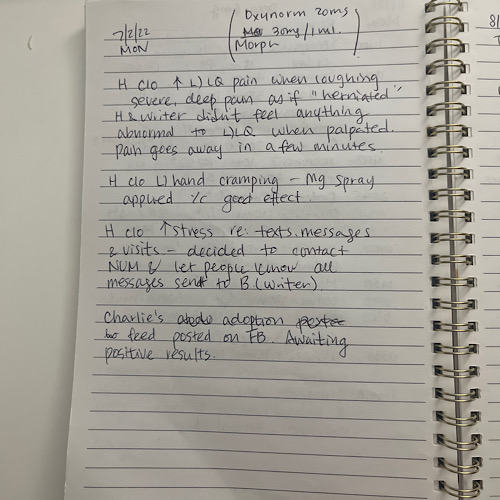 7/2/22
MON
Oxynorm 20mg
30mg/1ml.
Morph
H c/o ↑ L) LQ pain when coughing
severe, deep pain as if "herniated"
H & writer didn't feel anything
abnormal to L) LQ when palpated.
Pain goes away in a few minutes.
H c/o L) hand cramping - Mg spray
applied good effect
H c/o ↑ stress re: texts messages
& visits - decided to contact
NUM & let people know all
messages sent to B (writer)
Charlie's adoption
feed posted on FB. Awaiting
positive results.
8/